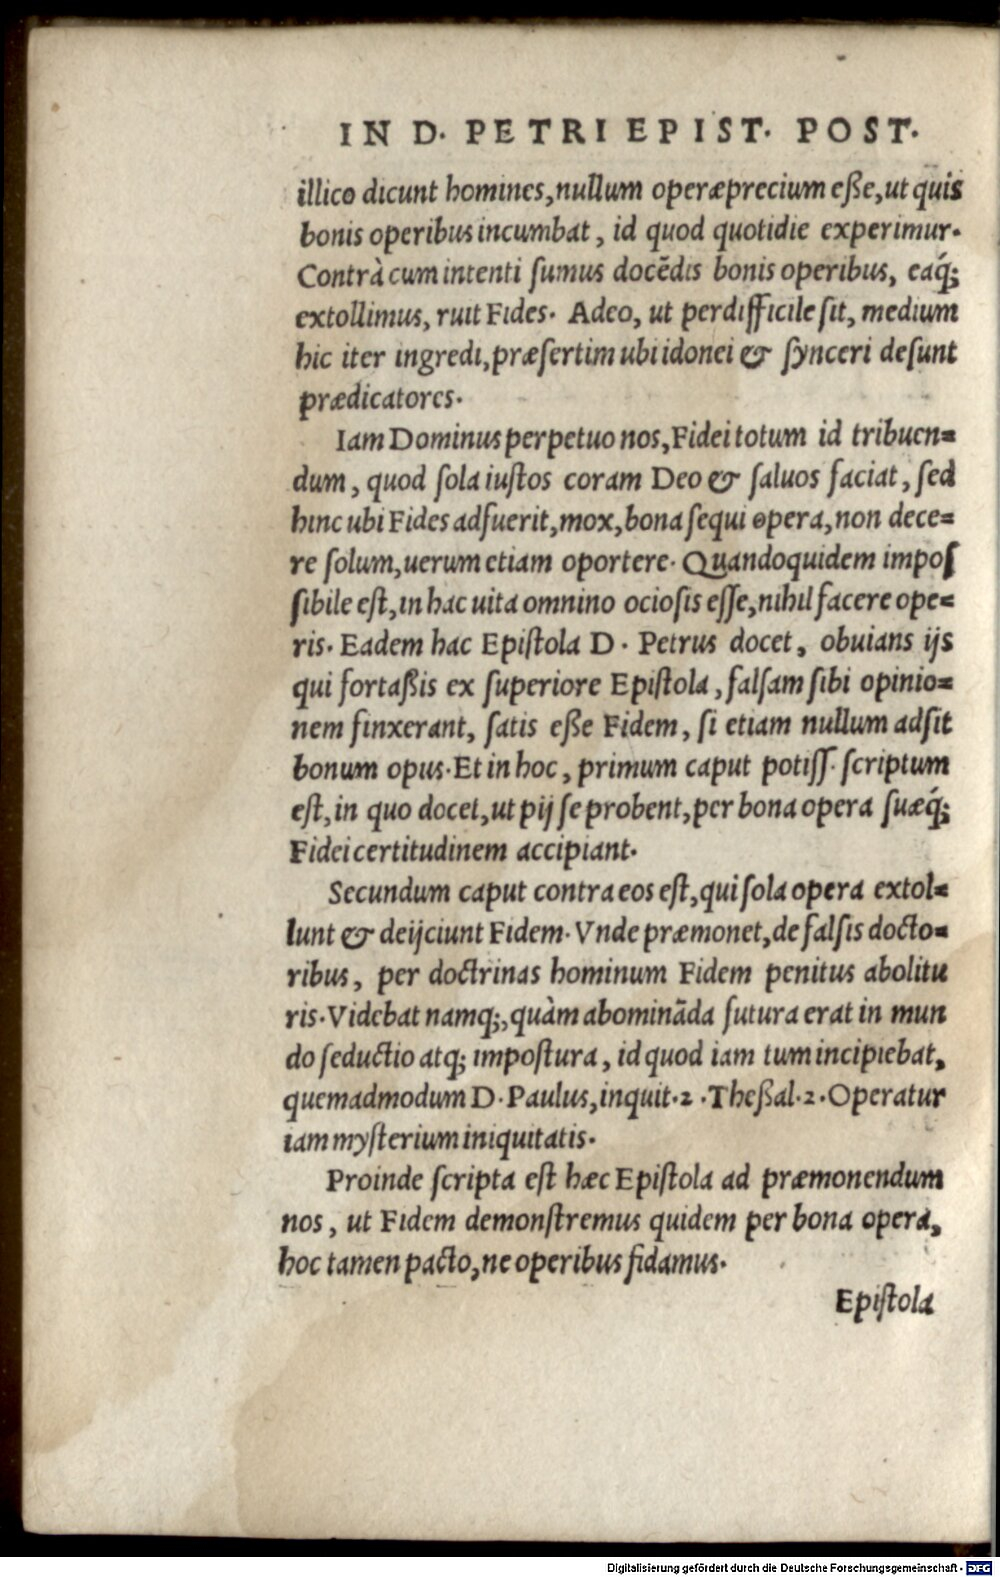 IN D. PETRI EPIST. POST.
illico dicunt homines, nullum operæprecium eße, ut quis
bonis operibus incumbat, id quod quotidie experimur.
Contrà cum intenti sumus docēdis bonis operibus, eaq́;
extollimus, ruit Fides. Adeo, ut perdifficile sit, medium
hic iter ingredi, præsertim ubi idonei & synceri desunt
prædicatores.
Iam Dominus perpetuo nos, Fidei totum id tribuen=
dum, quod sola iustos coram Deo & saluos faciat, sed
hinc ubi Fides adfuerit, mox, bona sequi opera, non dece=
re solum, uerum etiam oportere. Quandoquidem impos
sibile est, in hac uita omnino ociosis esse, nihil facere ope=
ris. Eadem hac Epistola D. Petrus docet, obuians ijs
qui fortaßis ex superiore Epistola, falsam sibi opinio=
nem finxerant, satis eße Fidem, si etiam nullum adsit
bonum opus. Et in hoc, primum caput potiss. scriptum
est, in quo docet, ut pij se probent, per bona opera suæq́;
Fidei certitudinem accipiant.
Secundum caput contra eos est, qui sola opera extol=
lunt & deijciunt Fidem. Vnde præmonet, de falsis docto=
ribus, per doctrinas hominum Fidem penitus abolitu
ris. Videbat namq;, quàm abomināda futura erat in mun
do seductio atq; impostura, id quod iam tum incipiebat,
quemadmodum D. Paulus, inquit. 2. Theßal. 2. Operatur
iam mysterium iniquitatis.
Proinde scripta est hæc Epistola ad præmonendum
nos, ut Fidem demonstremus quidem per bona opera,
hoc tamen pacto, ne operibus fidamus.
Epistola
Digitalisierung gefördert durch die Deutsche Forschungsgemeinschaft - DFG